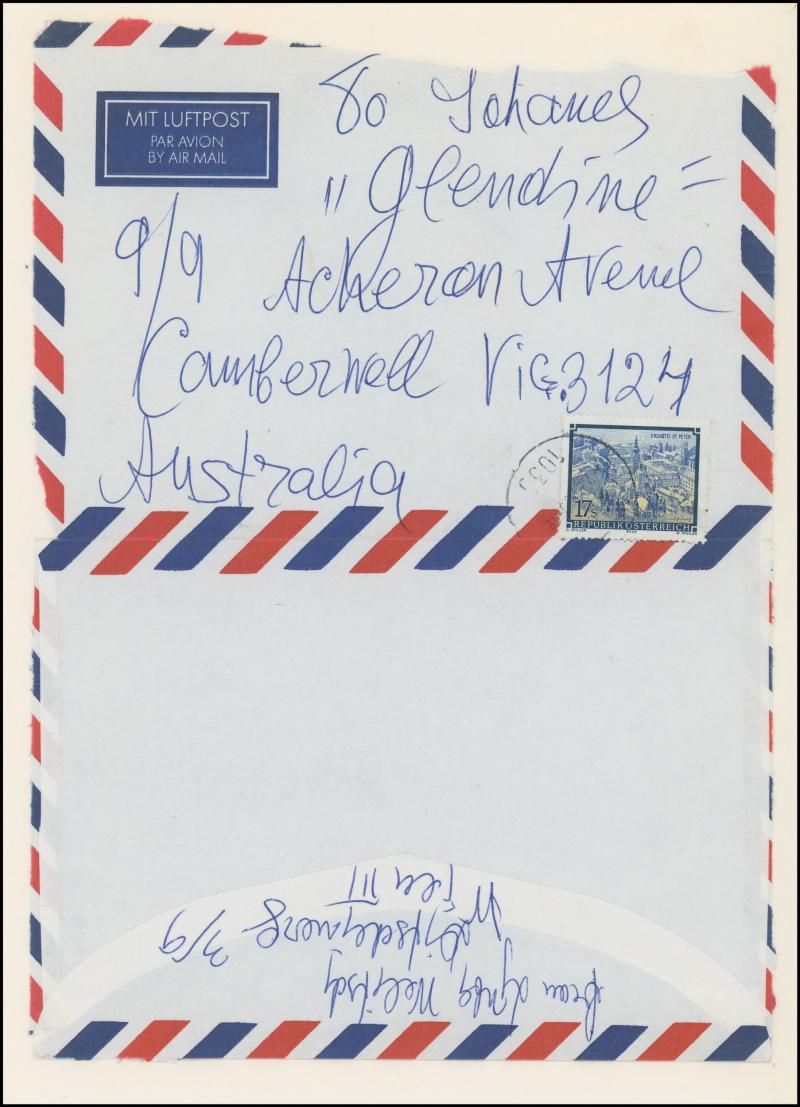 MIT LUFTPOST
PAR AVION
BY AIR MAIL
To Johanes
"Glendine"
9/9 Ackeron Avenue
Camberwell Vic. 3124
Australia
1030
ERZABTEI ST PETER
17 S
REPUBLIK ÖSTERREICH
Frau
3/9
Wien III